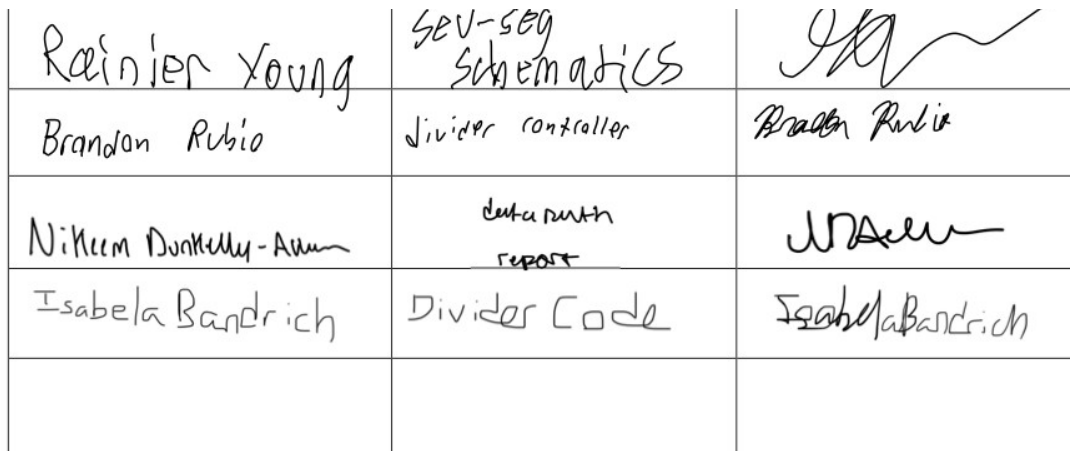 Rainier Young
sev-seg
schematics
Brandon Rubio
divider controller
Brandon Rubio
Nikeem Dunkelly-Allen
datapath
report
Isabela Bandrich
Divider Code
Isabela Bandrich